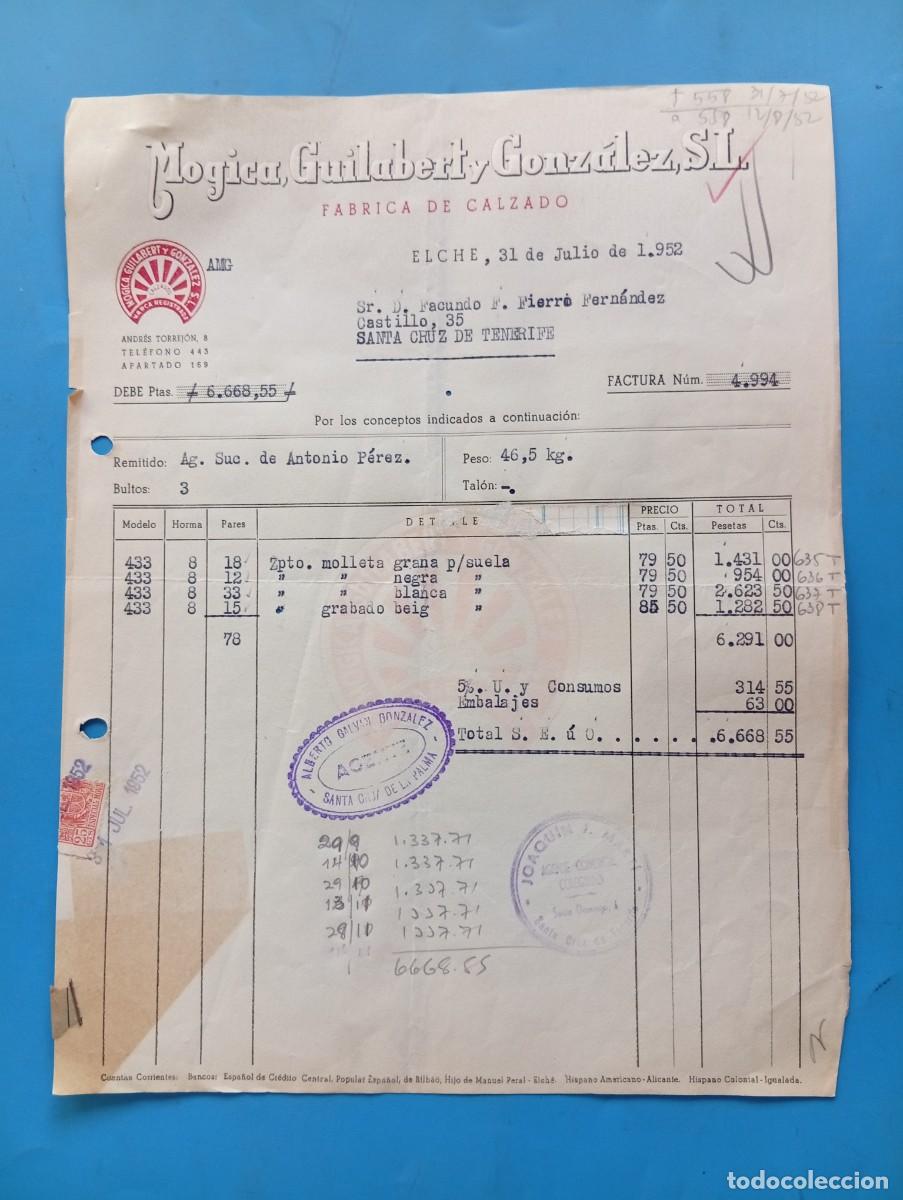 + 558 31/7/52
a 558 12/8/52
Mogica, Guilabert y González, S.L.
FABRICA DE CALZADO
MOGICA, GUILABERT Y GONZALEZ S.L.
MARCA REGISTRADA
AMG
ELCHE, 31 de Julio de 1.952
Sr. D. Facundo F. Fierro Fernández
Castillo, 35
SANTA CRUZ DE TENERIFE
ANDRÉS TORREJÓN, 8
TELÉFONO 443
APARTADO 169
DEBE Ptas. 6.668,55
FACTURA Núm. 4.994
Por los conceptos indicados a continuación:
Remitido: Ag. Suc. de Antonio Pérez.
Peso: 46,5 kg.
Bultos: 3
Talón: -.
Modelo Horma Pares DETALLE PRECIO Ptas. Cts. TOTAL Pesetas Cts.
433 8 18 Zpto. molleta grana p/suela 79 50 1.431 00 635 T
433 8 12 " " negra " 79 50 954 00 636 T
433 8 33 " " blanca " 79 50 2.623 50 637 T
433 8 15 " grabado beig " 85 50 1.282 50 638 T
78 6.291 00
5%. U. y Consumos 314 55
Embalajes 63 00
Total S. E. ú O. . . . . . . . 6.668 55
ALBERTO GALVAN GONZALEZ
AGENTE
SANTA CRUZ DE LA PALMA
31 JUL. 1952
25
29/9 1.337.71
14/10 1.337.71
29/10 1.337.71
13/11 1337.71
28/11 1337.71
6668.55
JOAQUÍN
AGENTE COMERCIAL
COLEGIADO
Santo Domingo, 4
Santa Cruz de Tenerife
Cuentas Corrientes: Bancos: Español de Crédito Central, Popular Español, de Bilbao, Hijo de Manuel Peral - Elche. Hispano Americano - Alicante. Hispano Colonial - Igualada.
todocoleccion